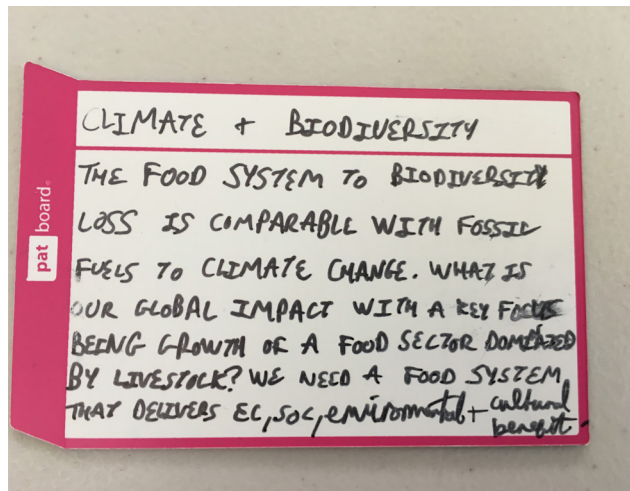 CLIMATE + BIODIVERSITY
THE FOOD SYSTEM TO BIODIVERSITY
LOSS IS COMPARABLE WITH FOSSIL
FUELS TO CLIMATE CHANGE. WHAT IS
OUR GLOBAL IMPACT WITH A KEY FOCUS
BEING GROWTH OF A FOOD SECTOR DOMINATED
BY LIVESTOCK? WE NEED A FOOD SYSTEM
THAT DELIVERS EC, SOC, environmental + cultural
benefit
pat board®